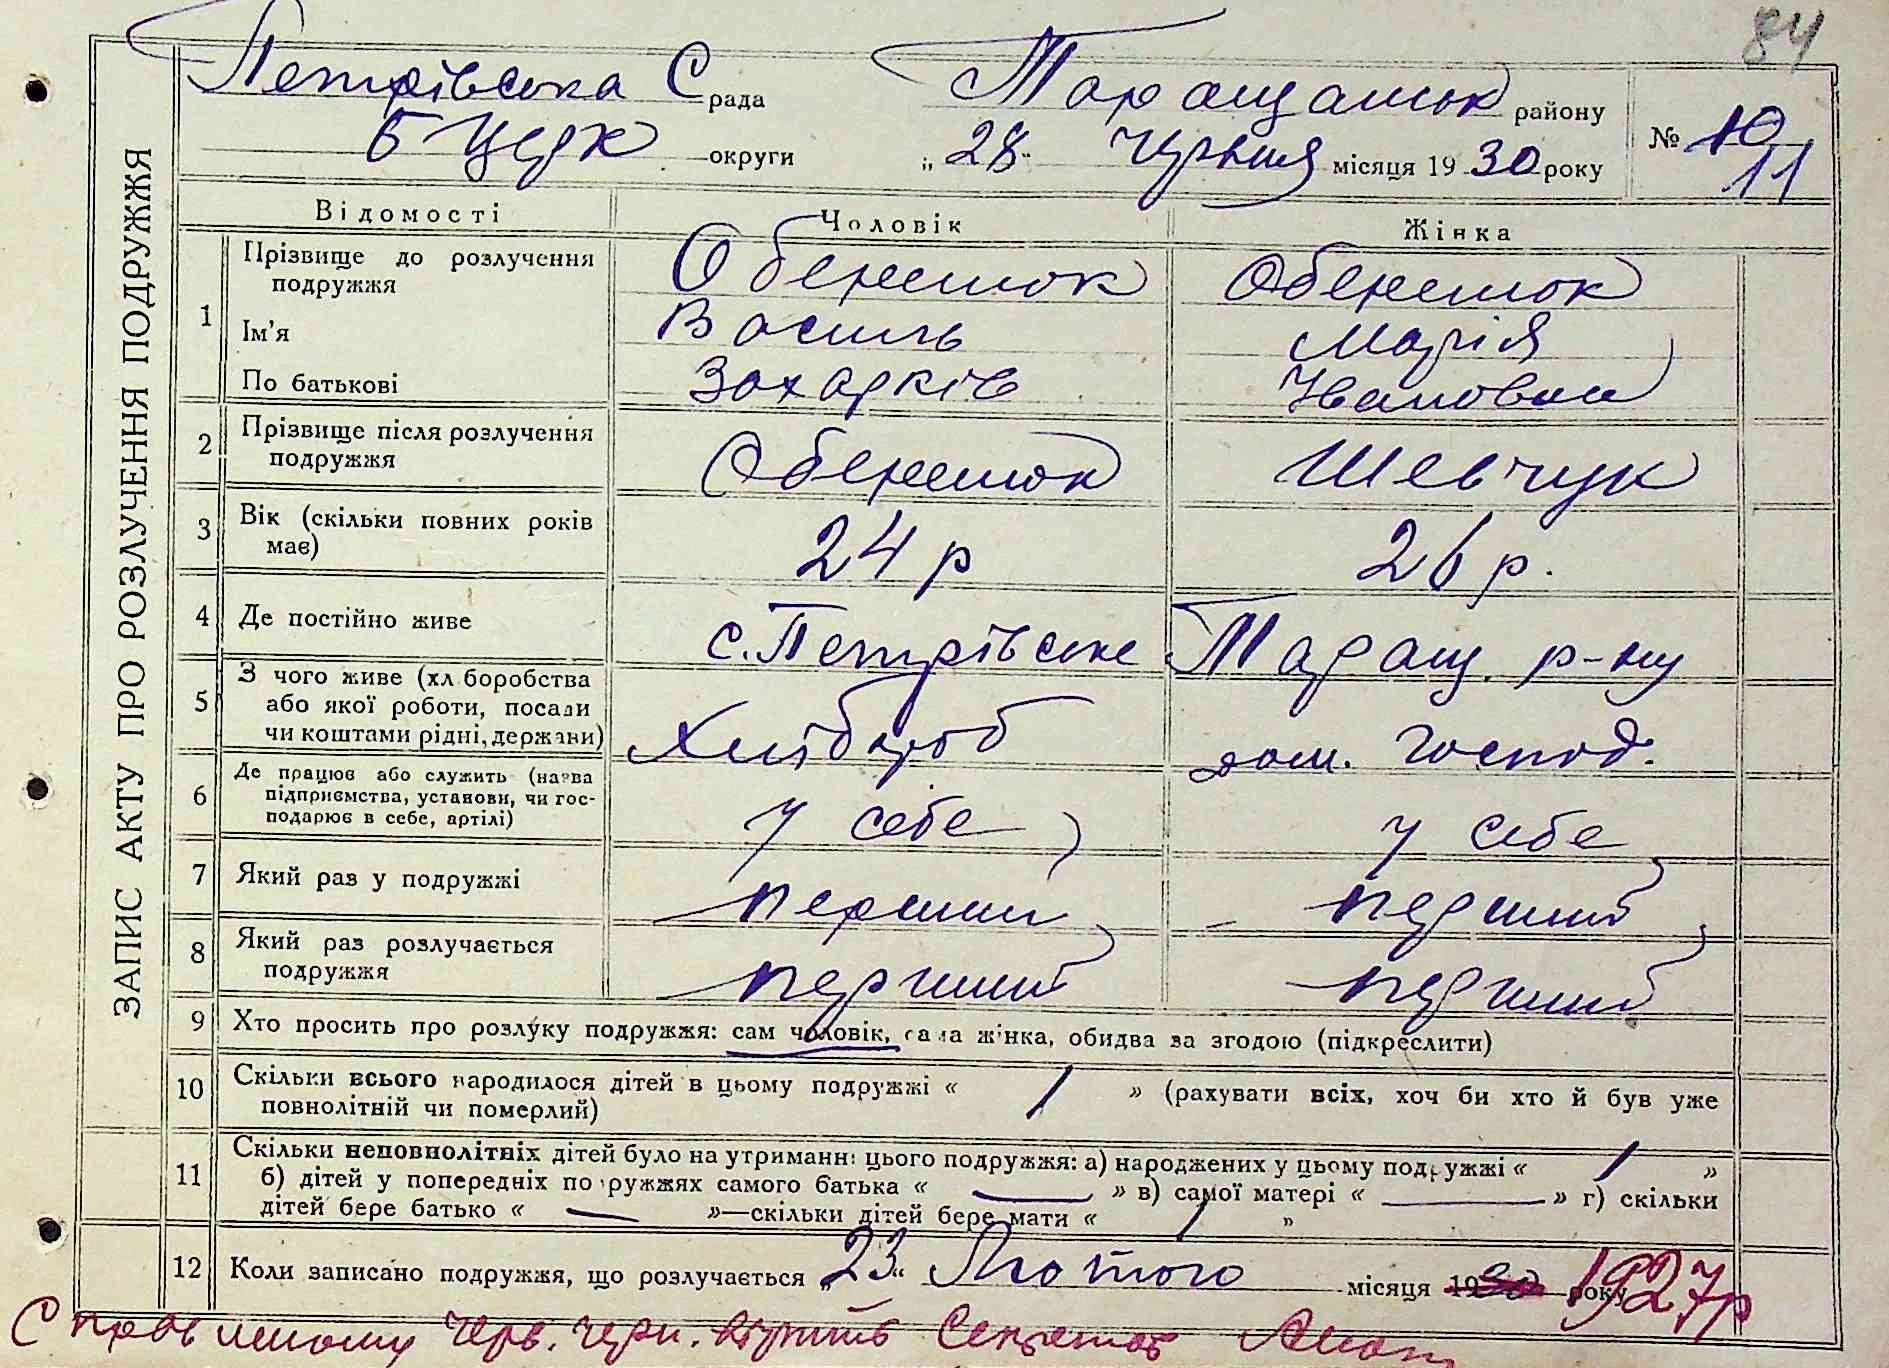 84
ЗАПИС АКТУ ПРО РОЗЛУЧЕННЯ ПОДРУЖЖЯ
Петрівська С рада Таращанськ району
Б Церк округи „ 28 " Червня місяця 19 30 року № 10 11
Відомості Чоловік Жінка
1 Прізвище до розлучення подружжя Обенеток Обенеток
Ім'я Василь Марія
По батькові Захарків Івановна
2 Прізвище після розлучення подружжя Обенеток Шевчук
3 Вік (скільки повних років має) 24 р 26 р.
4 Де постійно живе с. Петрівське Таращ. р-ну
5 З чого живе (хліборобства
або якої роботи, посади
чи коштами рідні, держави) Хлібороб дом. господ.
6 Де працює або служить (назва
підприємства, установи, чи гос-
подарює в себе, артілі) у себе у себе
7 Який раз у подружжі перший перший
8 Який раз розлучається
подружжя перший перший
9 Хто просить про розлуку подружжя: сам чоловік, сама жінка, обидва за згодою (підкреслити)
10 Скільки всього народилося дітей в цьому подружжі « 1 » (рахувати всіх, хоч би хто й був уже
повнолітній чи померлий)
11 Скільки неповнолітніх дітей було на утриманні цього подружжя: а) народжених у цьому подружжі « 1 »
б) дітей у попередніх подружжях самого батька « — » в) самої матері « — » г) скільки
дітей бере батько « — »—скільки дітей бере мати « 1 »
12 Коли записано подружжя, що розлучається „ 23 " Лютого місяця 1930 року 1927 р
Секретар